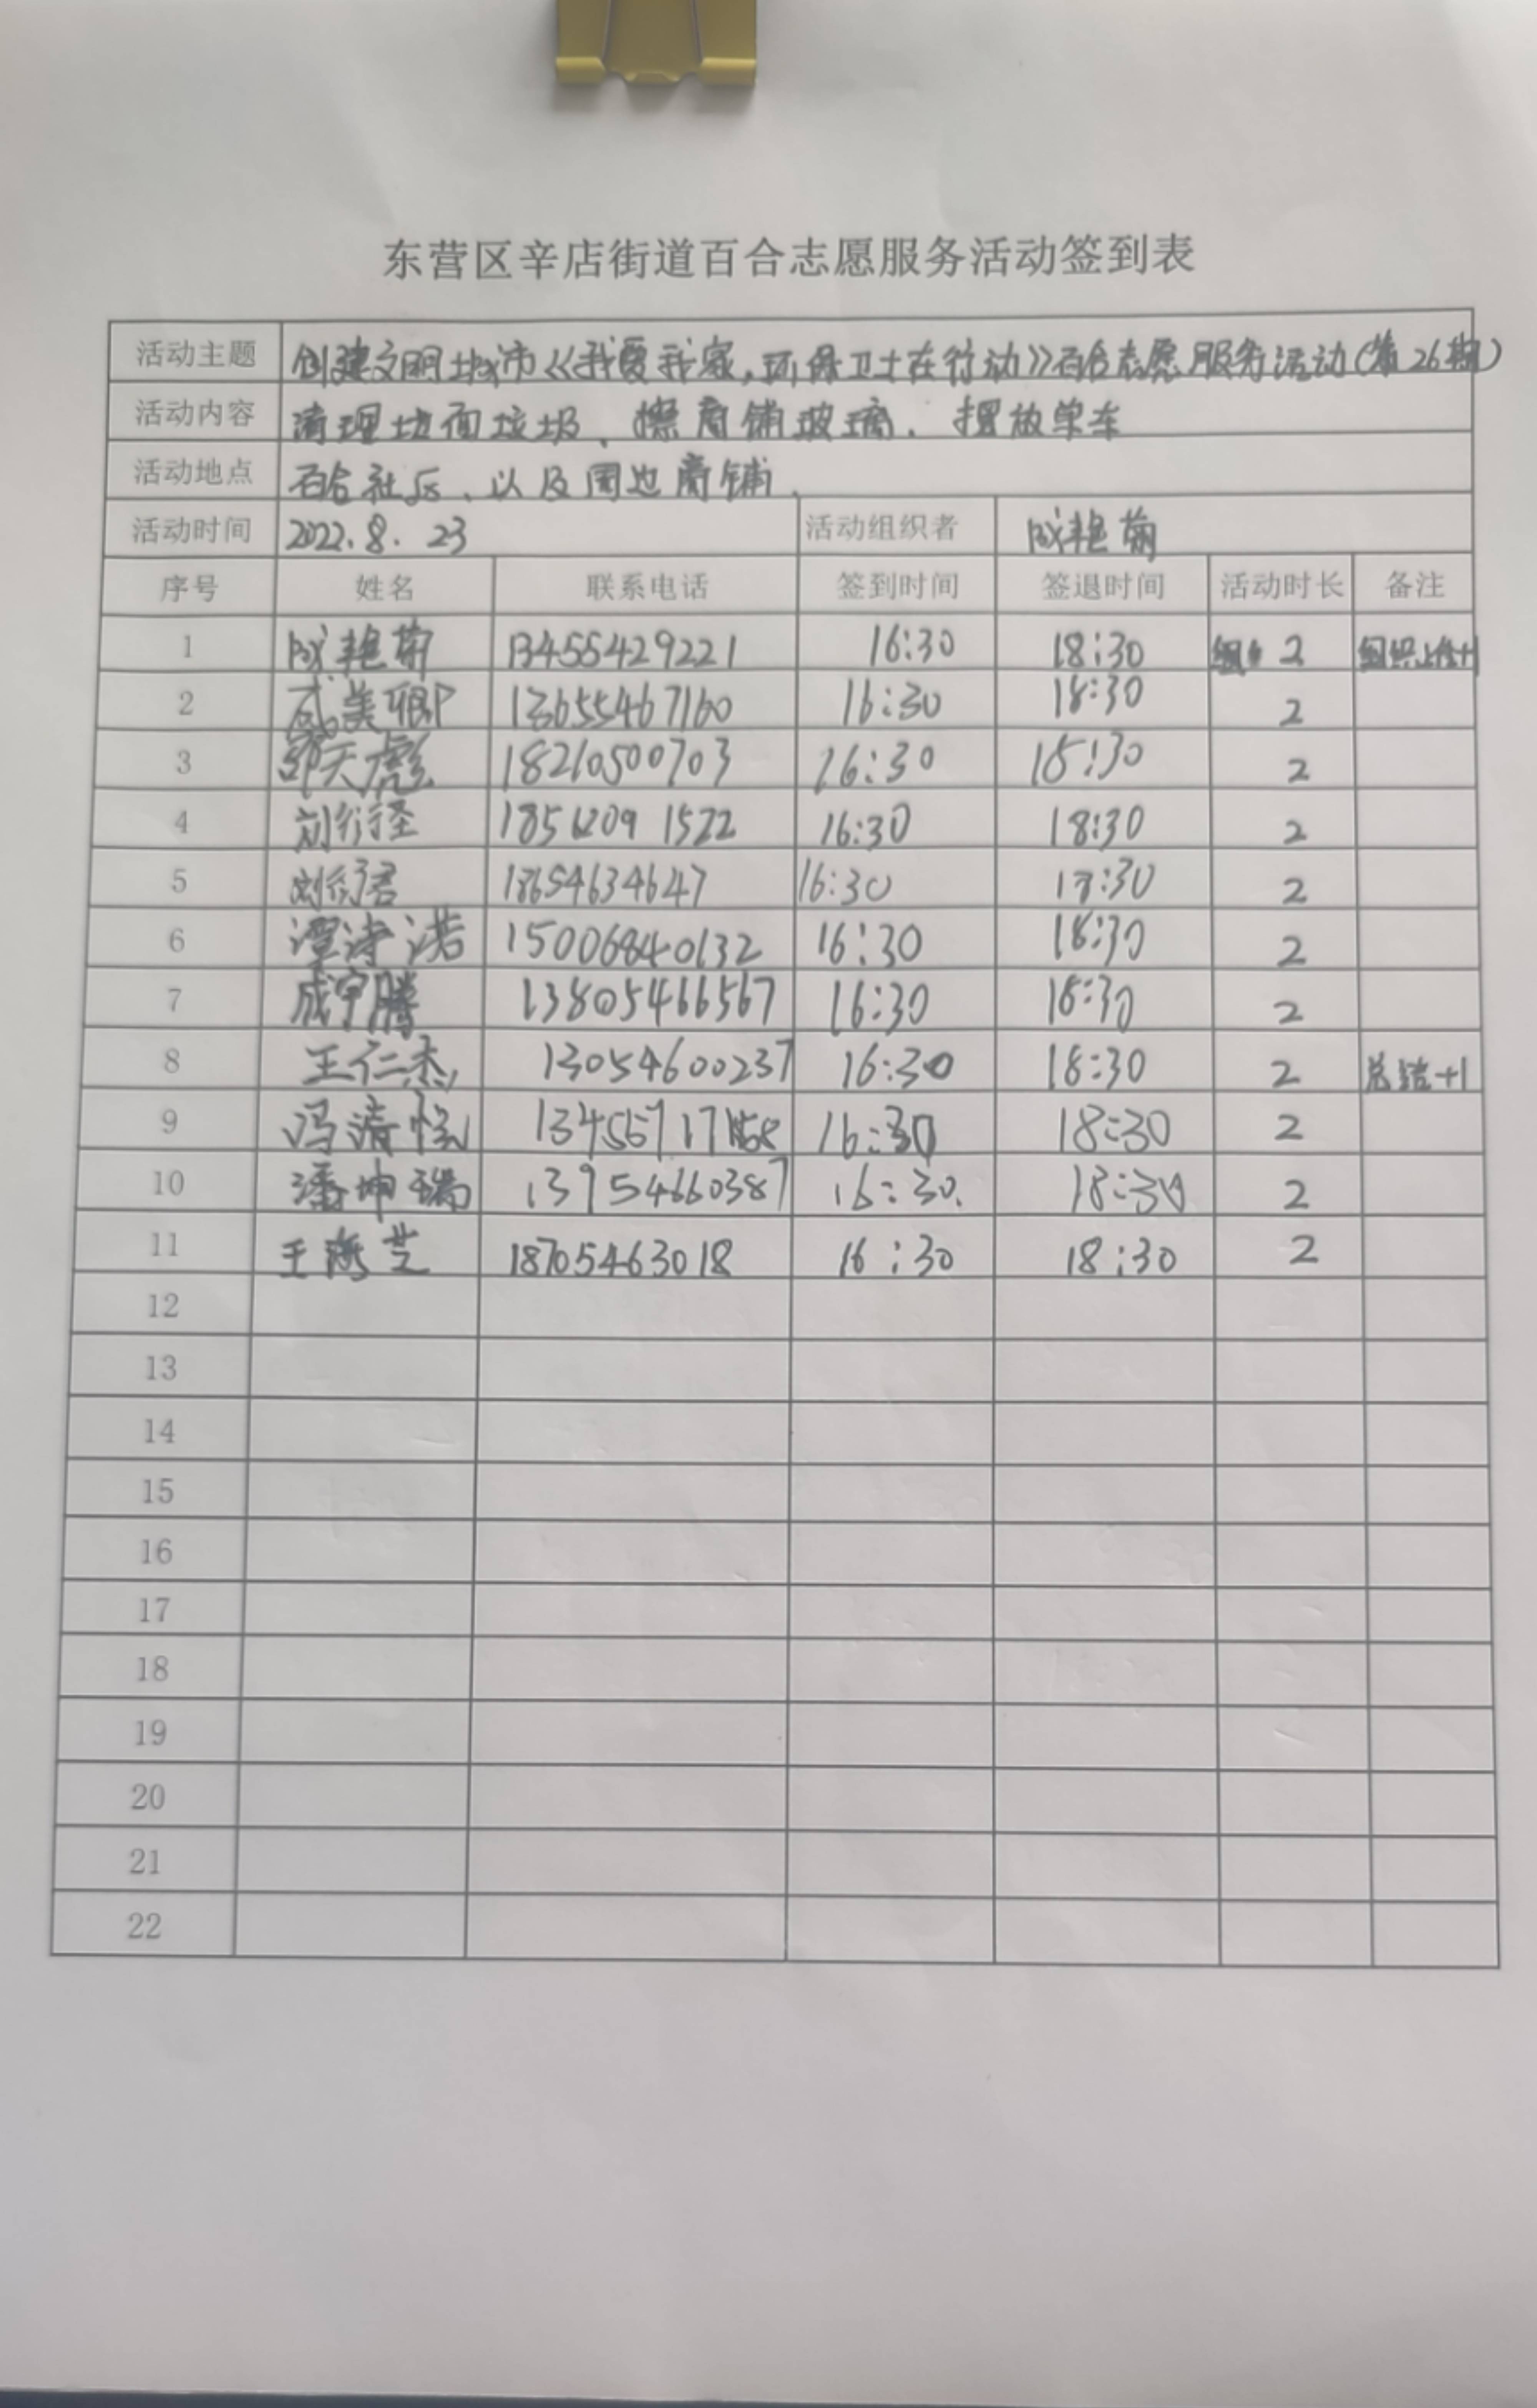 东营区辛店街道百合志愿服务活动签到表
活动主题 创建文明城市《我爱我家,环保卫士在行动》百合志愿服务活动(第26期)
活动内容 清理地面垃圾、擦商铺玻璃、摆放单车
活动地点 百合社区、以及周边商铺、
活动时间 2022.8.23 活动组织者 成艳菊
序号 姓名 联系电话 签到时间 签退时间 活动时长 备注
1 成艳菊 13455429221 16:30 18:30 2 组织上传+1
2 戚美卿 13655467160 16:30 18:30 2
3 邵天彪 18210500703 16:30 18:30 2
4 刘衍泽 16:30 18:30 2
5 刘衍君 18654634647 16:30 18:30 2
6 谭诗诺 15006840132 16:30 18:30 2
7 成宇腾 13805466567 16:30 18:30 2
8 王仁杰 13054600237 16:30 18:30 2 总结+1
9 冯清悦 16:30 18:30 2
10 潘坤瑞 13954660387 16:30. 18:30 2
11 王海芝 18705463018 16:30 18:30 2
12
13
14
15
16
17
18
19
20
21
22